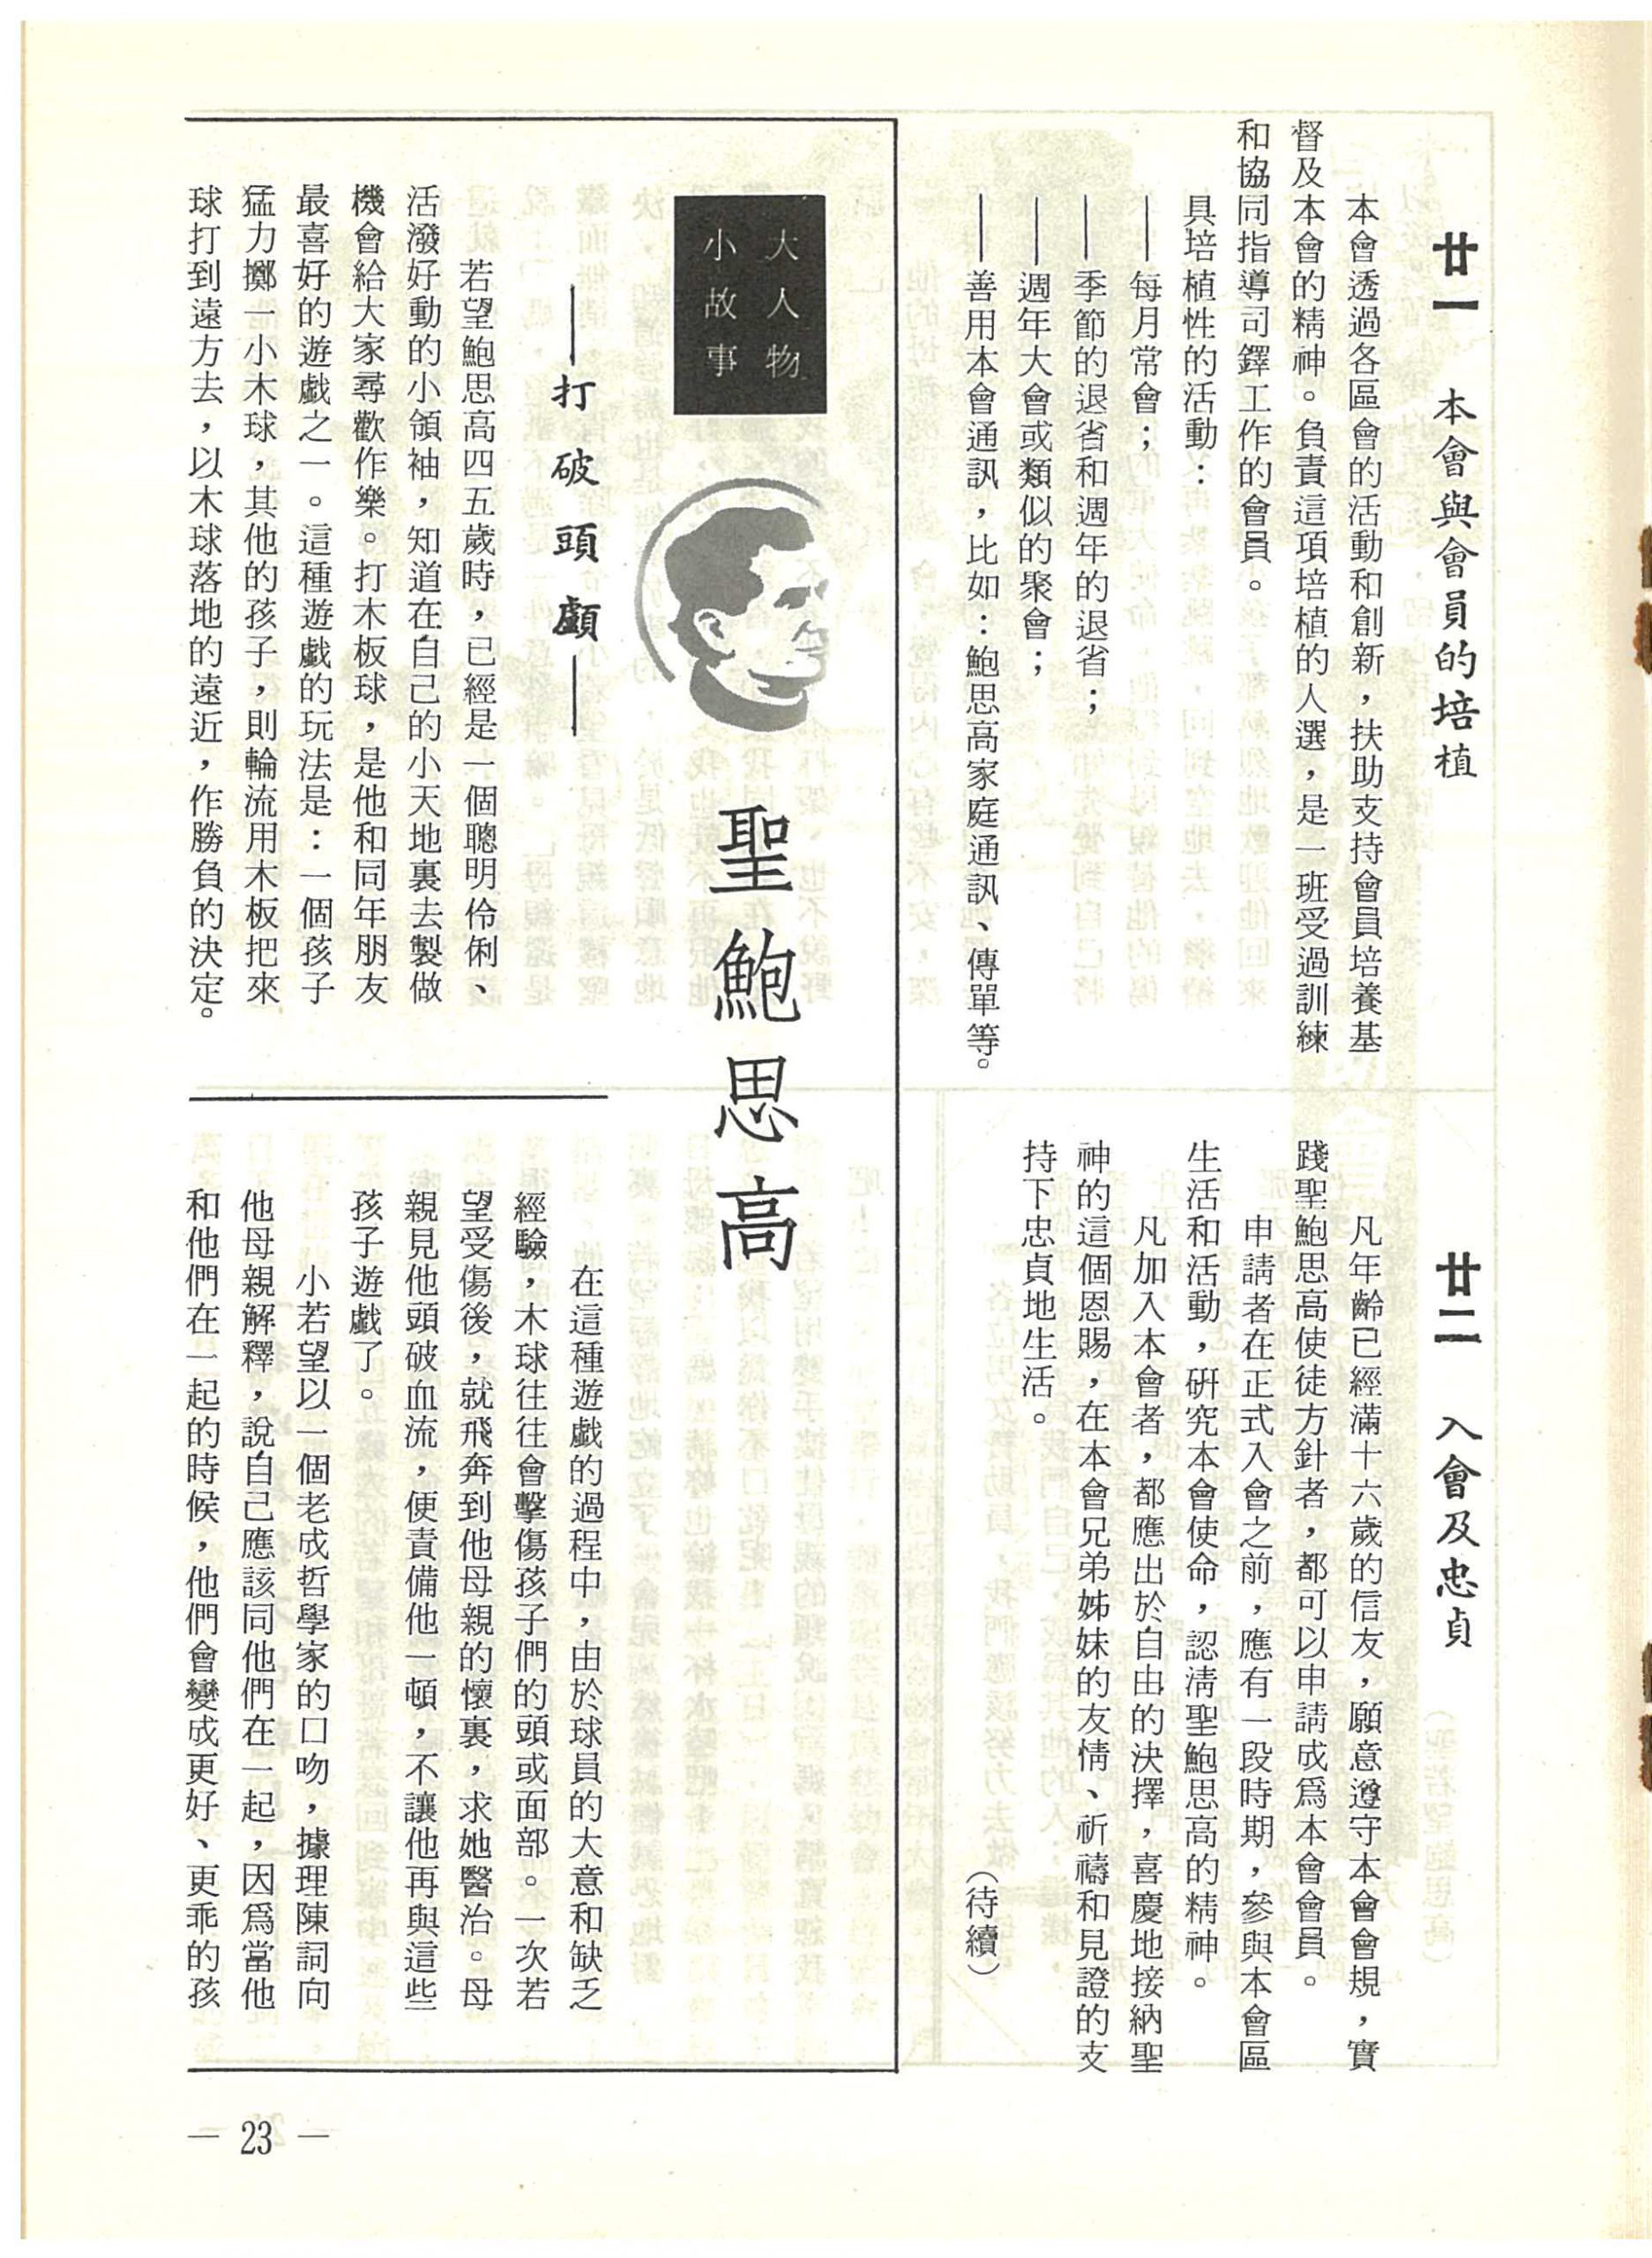 廿一　本會與會員的培植
本會透過各區會的活動和創新，扶助支持會員培養基
督及本會的精神。負責這項培植的人選，是一班受過訓練
和協同指導司鐸工作的會員。
具培植性的活動：
——每月常會；
——季節的退省和週年的退省；
——週年大會或類似的聚會；
——善用本會通訊，比如：鮑思高家庭通訊、傳單等。
廿二　入會及忠貞
凡年齡已經滿十六歲的信友，願意遵守本會會規，實
踐聖鮑思高使徒方針者，都可以申請成爲本會會員。
申請者在正式入會之前，應有一段時期，參與本會區
生活和活動，研究本會使命，認淸聖鮑思高的精神。
凡加入本會者，都應出於自由的決擇，喜慶地接納聖
神的這個恩賜，在本會兄弟姊妹的友情、祈禱和見證的支
持下忠貞地生活。
（待續）
大人物
小故事
聖鮑思高
——打破頭顱——
若望鮑思高四五歲時，已經是一個聰明伶俐、
活潑好動的小領袖，知道在自己的小天地裏去製做
機會給大家尋歡作樂。打木板球，是他和同年朋友
最喜好的遊戲之一。這種遊戲的玩法是：一個孩子
猛力擲一小木球，其他的孩子，則輪流用木板把來
球打到遠方去，以木球落地的遠近，作勝負的決定。
在這種遊戲的過程中，由於球員的大意和缺乏
經驗，木球往往會擊傷孩子們的頭或面部。一次若
望受傷後，就飛奔到他母親的懷裏，求她醫治。母
親見他頭破血流，便責備他一頓，不讓他再與這些
孩子遊戲了。
小若望以一個老成哲學家的口吻，據理陳詞向
他母親解釋，說自己應該同他們在一起，因爲當他
和他們在一起的時候，他們會變成更好、更乖的孩
— 23 —